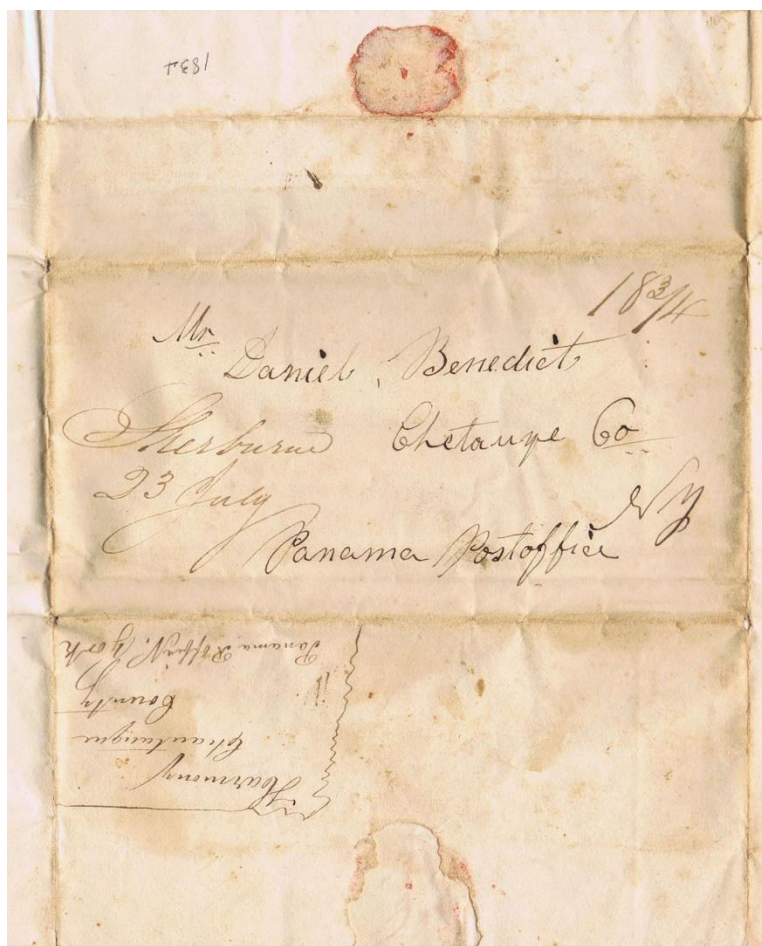 1834
18 3/4
Mr. Daniel Benedict
Sherburne Chetauqe Co
23 July
NY
Panama Postoffice
Harmony
Chautauque
County
Panama P. Office N. York